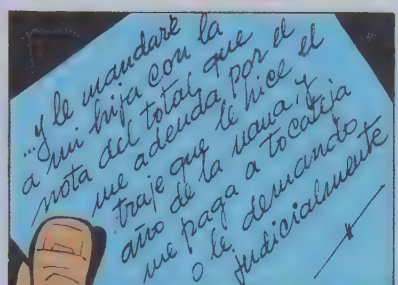 ...y le mandaré
a mi hija con la
nota del total que
me adeuda, por el
traje que le hice el
año de la nana, y
me paga a tocateja
o le demando
judicialmente